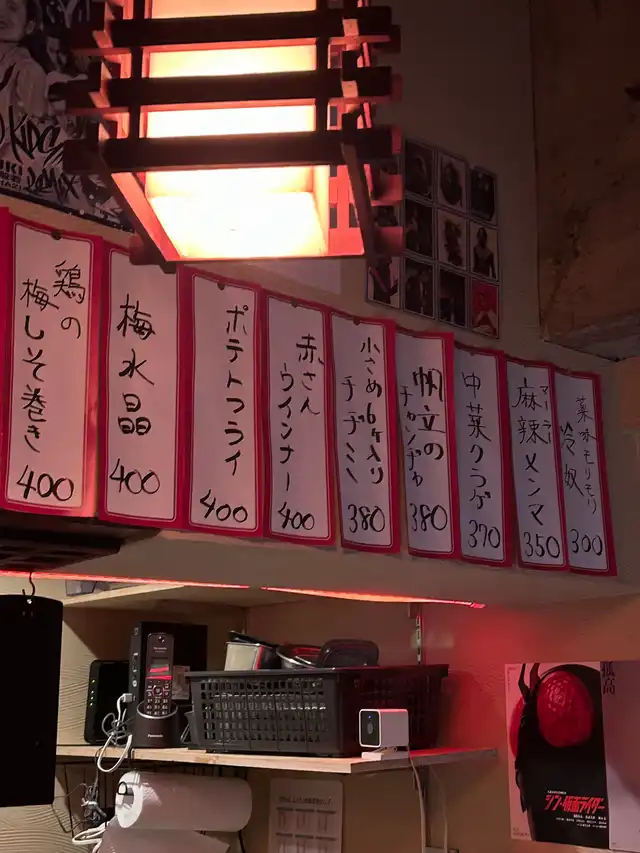 薬味モリモリ
冷奴
300
麻辣メンマ
マーラー
350
中華クラゲ
370
帆立の
チャンヂャ
380
小さめ6ヶ入り
チヂミ
380
赤さん
ウインナー
400
ポテトフライ
400
梅水晶
400
鶏の
梅しそ巻き
400
KIDS
Panasonic
孤高
シン・仮面ライダー